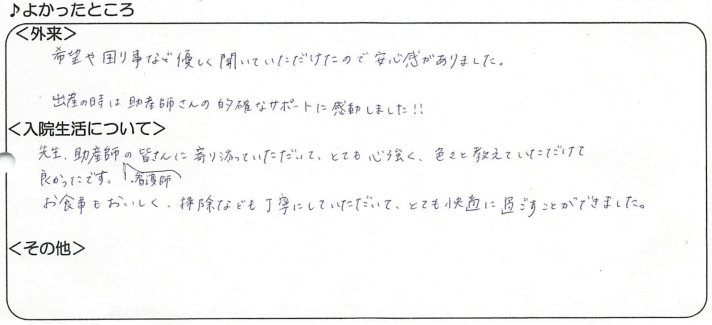 ♪よかったところ
<外来>
希望や困り事など優しく聞いていただけたので安心感がありました。
出産の時は助産師さんの的確なサポートに感動しました!!
<入院生活について>
先生、助産師の皆さんに寄り添っていただいて、とても心強く、色々と教えていただけて
良かったです。 看護師
お食事もおいしく、掃除なども丁寧にしていただいて、とても快適に過ごすことができました。
<その他>